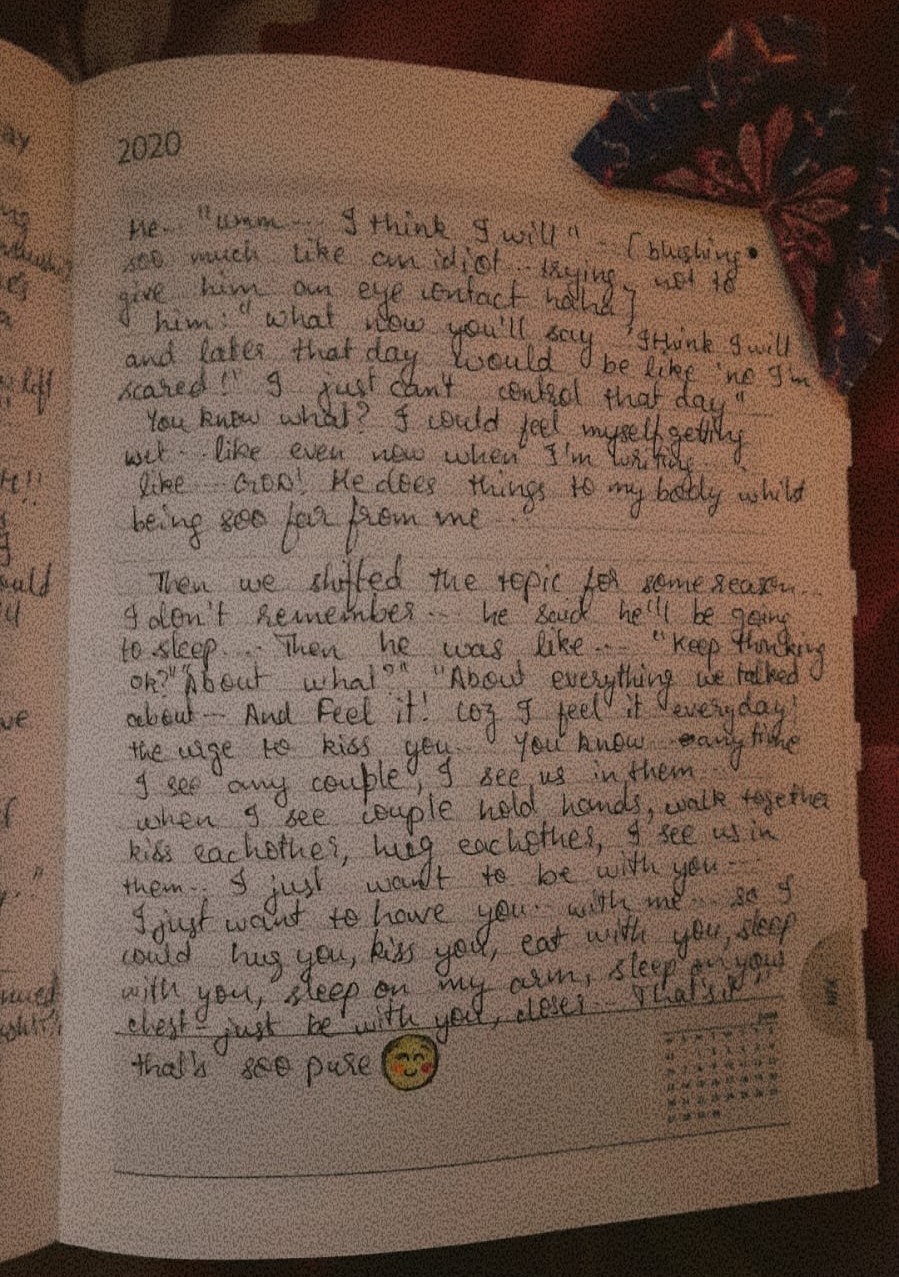 2020
Me-- "umm--- I think I will" -- [blushing
soo much like an idiot-- trying not to
give him an eye contact haha]
him: "what now you'll say 'I think I will
and later that day would be like 'no I'm
scared!!' I just can't control that day"
You know what? I could feel myself getting
wet-- like even now when I'm writing--
like--- GOD! He does things to my body whilst
being soo far from me ---
Then we shifted the topic for some reason--
I don't remember--- he said he'll be going
to sleep--- Then he was like--- "Keep thinking
ok?" "About what?" "About everything we talked
about-- And Feel it! coz I feel it everyday!
the urge to kiss you-- You know anytime
I see any couple, I see us in them--
when I see couple hold hands, walk together
kiss eachother, hug eachother, I see us in
them-- I just want to be with you---
I just want to have you-- with me-- so I
could hug you, kiss you, eat with you, sleep
with you, sleep on my arm, sleep on your
chest- just be with you, closer-- That's it"
that's soo pure